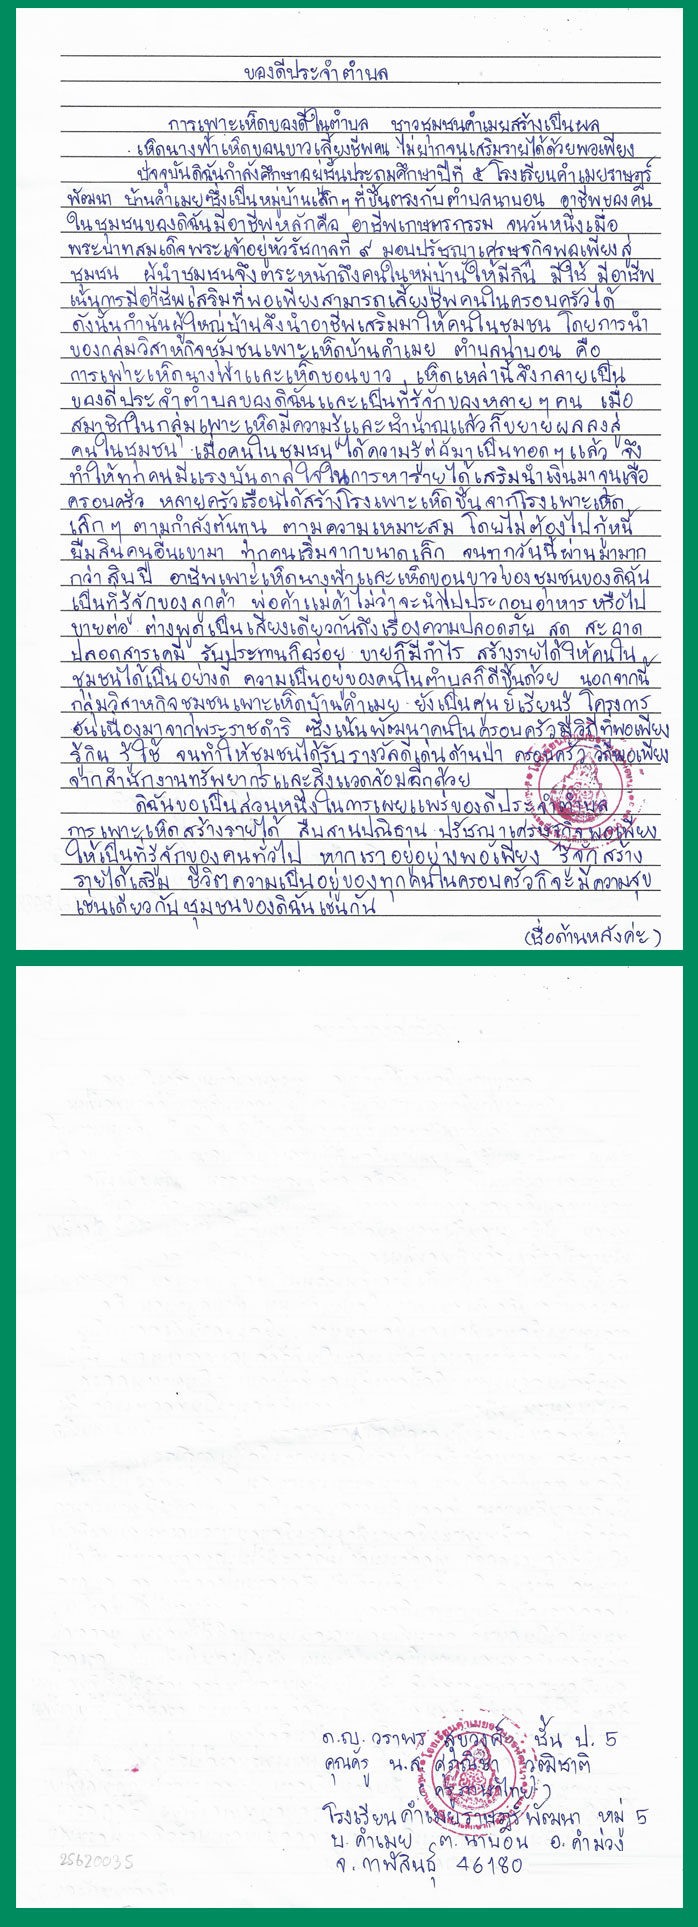 ของดีประจำตำบล
การเพาะเห็ดของดีในตำบล ชาวชุมชนคำเมยสร้างเป็นผล
เห็ดนางฟ้าเห็ดขอนขาวเลี้ยงชีพคน ไม่ยากจนเสริมรายได้ด้วยพอเพียง
ปัจจุบันดิฉันกำลังศึกษาอยู่ชั้นประถมศึกษาปีที่ ๕ โรงเรียนคำเมยราษฎร์
พัฒนา บ้านคำเมยซึ่งเป็นหมู่บ้านเล็กๆที่ขึ้นตรงกับตำบลนาบอน อาชีพของคน
ในชุมชนของดิฉันมีอาชีพหลักคือ อาชีพเกษตรกรรม จนวันหนึ่งเมื่อ
พระบาทสมเด็จพระเจ้าอยู่หัวรัชกาลที่ ๙ มอบปรัชญาเศรษฐกิจพอเพียงสู่
ชุมชน ผู้นำชุมชนจึงตระหนักถึงคนในหมู่บ้านให้มีกิน มีใช้ มีอาชีพ
เน้นการมีอาชีพเสริมที่พอเพียงสามารถเลี้ยงชีพคนในครอบครัวได้
ดังนั้นกำนันผู้ใหญ่บ้านจึงนำอาชีพเสริมมาให้คนในชุมชน โดยการนำ
ของกลุ่มวิสาหกิจชุมชนเพาะเห็ดบ้านคำเมย ตำบลนาบอน คือ
การเพาะเห็ดนางฟ้าและเห็ดขอนขาว เห็ดเหล่านี้จึงกลายเป็น
ของดีประจำตำบลของดิฉันและเป็นที่รู้จักของหลายๆคน เมื่อ
สมาชิกในกลุ่มเพาะเห็ดมีความรู้และชำนาญแล้วก็ขยายผลลงสู่
คนในชุมชน เมื่อคนในชุมชนได้ความรู้ต่อมาเป็นทอดๆแล้ว จึง
ทำให้ทุกคนมีแรงบันดาลใจในการหารายได้เสริมนำเงินมาจุนเจือ
ครอบครัว หลายครัวเรือนได้สร้างโรงเพาะเห็ดขึ้น จากโรงเพาะเห็ด
เล็กๆ ตามกำลังต้นทุน ตามความเหมาะสม โดยไม่ต้องไปกู้หนี้
ยืมสินคนอื่นเขามา ทุกคนเริ่มจากขนาดเล็ก จนทุกวันนี้ผ่านมามาก
กว่าสิบปี อาชีพเพาะเห็ดนางฟ้าและเห็ดขอนขาวของชุมชนของดิฉัน
เป็นที่รู้จักของลูกค้า พ่อค้าแม่ค้าไม่ว่าจะนำไปประกอบอาหารหรือไป
ขายต่อ ต่างพูดเป็นเสียงเดียวกันถึงเรื่องความปลอดภัย สด สะอาด
ปลอดสารเคมี รับประทานก็อร่อย ขายก็มีกำไร สร้างรายได้ให้คนใน
ชุมชนได้เป็นอย่างดี ความเป็นอยู่ของคนในตำบลก็ดีขึ้นด้วย นอกจากนี้
กลุ่มวิสาหกิจชุมชนเพาะเห็ดบ้านคำเมย ยังเป็นศูนย์เรียนรู้ โครงการ
อันเนื่องมาจากพระราชดำริ ซึ่งเน้นพัฒนาคนในครอบครัวมีวิถีที่พอเพียง
รู้กิน รู้ใช้ จนทำให้ชุมชนได้รับรางวัลดีเด่นด้านป่า ครอบครัว วิถีพอเพียง
จากสำนักงานทรัพยากรและสิ่งแวดล้อมอีกด้วย
ดิฉันขอเป็นส่วนหนึ่งในการเผยแพร่ของดีประจำตำบล
การเพาะเห็ดสร้างรายได้ สืบสานปณิธาน ปรัชญาเศรษฐกิจพอเพียง
ให้เป็นที่รู้จักของคนทั่วไป หากเราอยู่อย่างพอเพียง รู้จักสร้าง
รายได้เสริม ชีวิตความเป็นอยู่ของทุกคนในครอบครัวก็จะมีความสุข
เช่นเดียวกับชุมชนของดิฉันเช่นกัน
(ชื่อด้านหลังค่ะ)
ด.ญ. วราพร สุขวงค์ ชั้น ป. 5
คุณครู น.ส. วุฒิชาติ
ครูภาษาไทย)
โรงเรียนคำเมยราษฎร์พัฒนา หมู่ 5
บ. คำเมย ต. นาบอน อ. คำม่วง
จ. กาฬสินธุ์ 46180
25620035